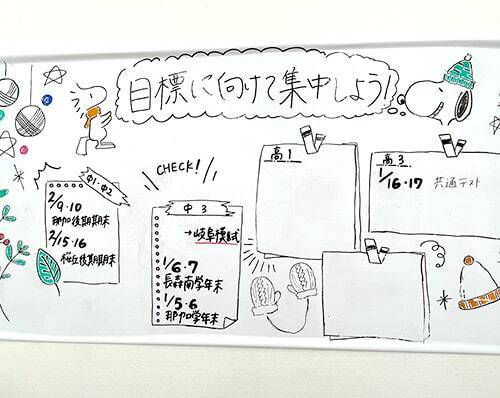 目標に向けて集中しよう!
中1・中2
2/9・10
那加後期期末
2/15・16
桜丘後期期末
CHECK!
中3
→岐阜模試
1/6・7
長森南学年末
1/5・6
那加学年末
高1
高3
1/16・17 共通テスト